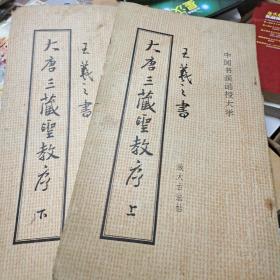 中国书画函授大学
王羲之書
大唐三藏聖教序 上
放大字字帖
王羲之書
大唐三藏聖教序 下